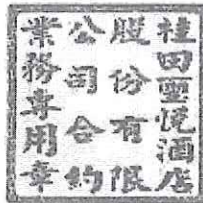 桂田璽悅酒店
股份有限
公司合約
業務專用章